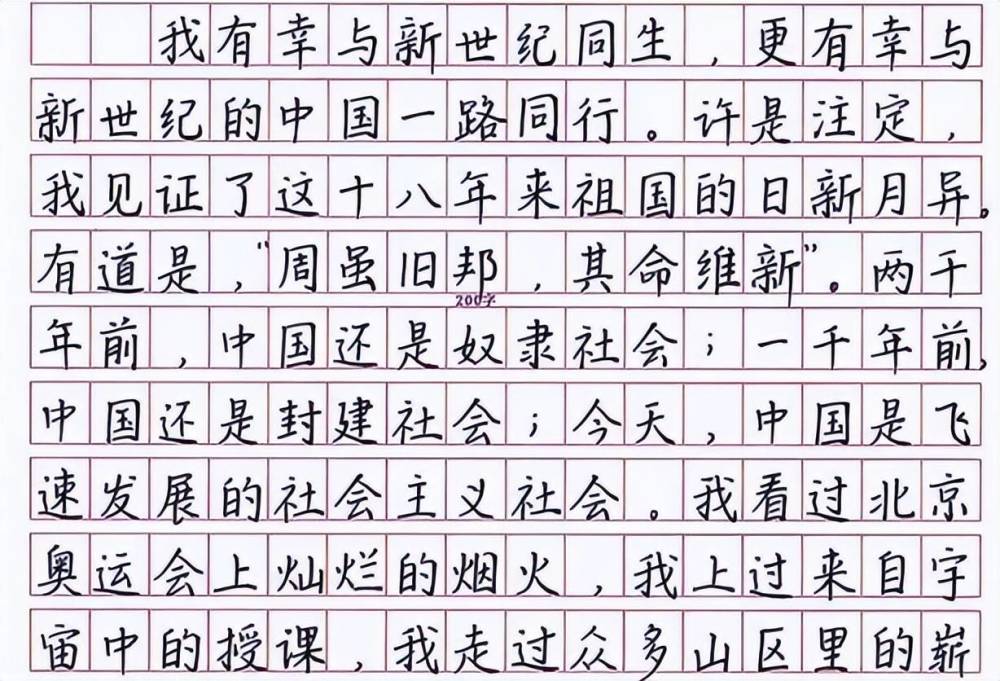 我有幸与新世纪同生，更有幸与
新世纪的中国一路同行。许是注定，
我见证了这十八年来祖国的日新月异。
有道是，“周虽旧邦，其命维新”。两千
200字
年前，中国还是奴隶社会；一千年前，
中国还是封建社会；今天，中国是飞
速发展的社会主义社会。我看过北京
奥运会上灿烂的烟火，我上过来自宇
宙中的授课，我走过众多山区里的崭